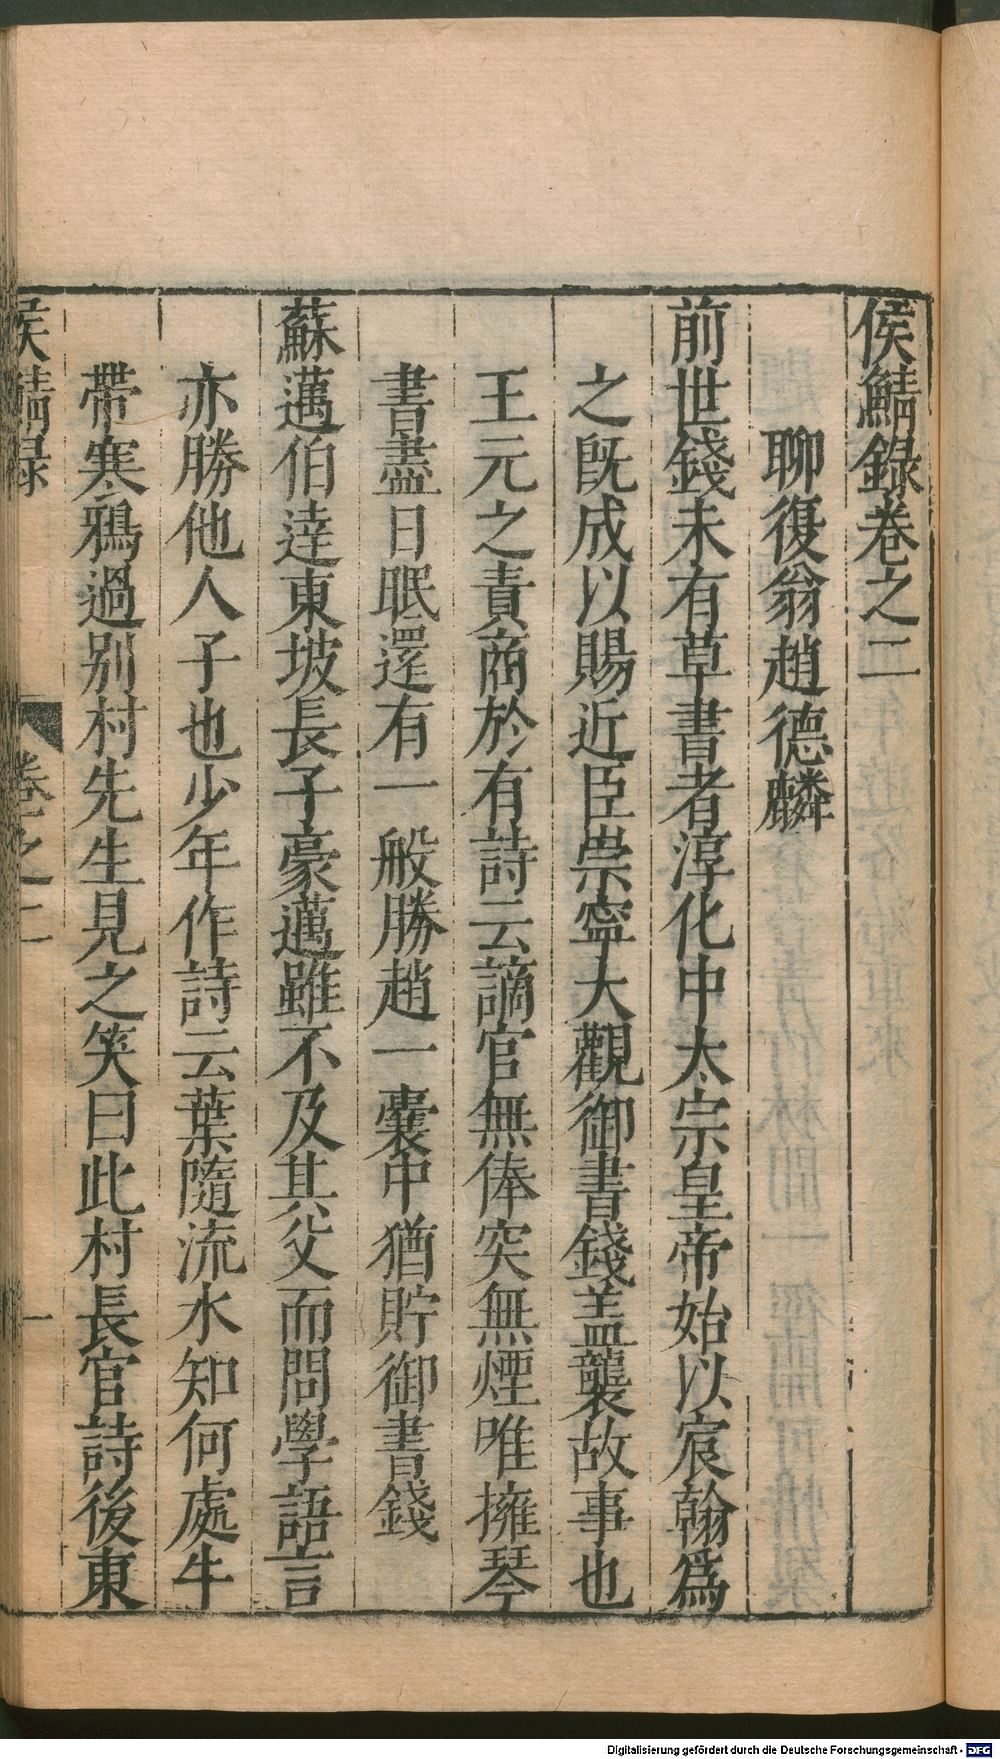 侯鯖錄卷之二
聊復翁趙德麟
前世錢未有草書者淳化中太宗皇帝始以宸翰爲
之旣成以賜近臣崇寧大觀御書錢盖襲故事也
王元之責商於有詩云謫官無俸突無煙唯擁琴
書盡日眠還有一般勝趙一囊中猶貯御書錢
蘇邁伯逹東坡長子豪邁雖不及其父而問學語言
亦勝他人子也少年作詩云葉隨流水知何處牛
帶寒鴉過别村先生見之笑曰此村長官詩後東
侯鯖録
卷之二
一
Digitalisierung gefördert durch die Deutsche Forschungsgemeinschaft - DFG